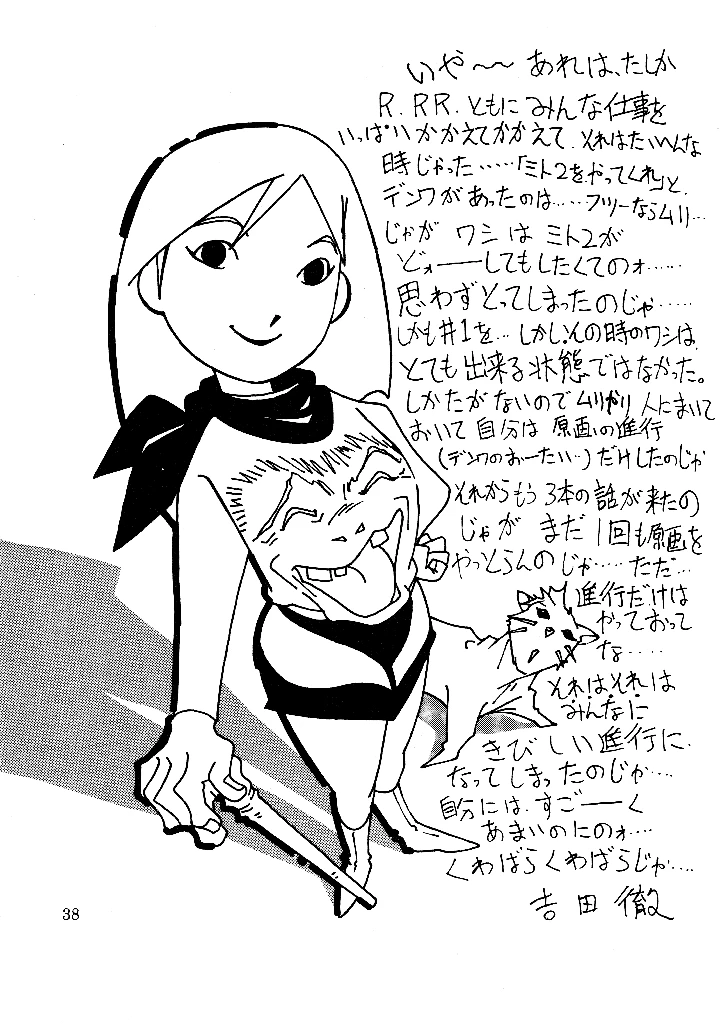 いや〜〜 あれは、たしか
R.RR.ともに みんな仕事を
いっぱい かかえてかかえて、それはたいへんな
時じゃった……「ミト2をやってくれ」と、
デンワがあったのは……フツーならムリ…
じゃが ワシは ミト2が
どォ——してもしたくてのォ……
思わずとってしまったのじゃ……
しかも#1を… しかしその時のワシは、
とても出来る状態ではなかった。
しかたがないのでムリヤリ 人にまいて
おいて 自分は 原画の進行
(デンワのおーたい…)だけしたのじゃ
それからもう3本の話が来たの
じゃが まだ 1回も原画を
やっとらんのじゃ……ただ…
進行だけは
やっておって
な……
それはそれは
みんなに
きびしい進行に、
なってしまったのじゃ……
自分には、すご——く
あまいのにのォ…
くわばらくわばらじゃ……
吉田 徹
38